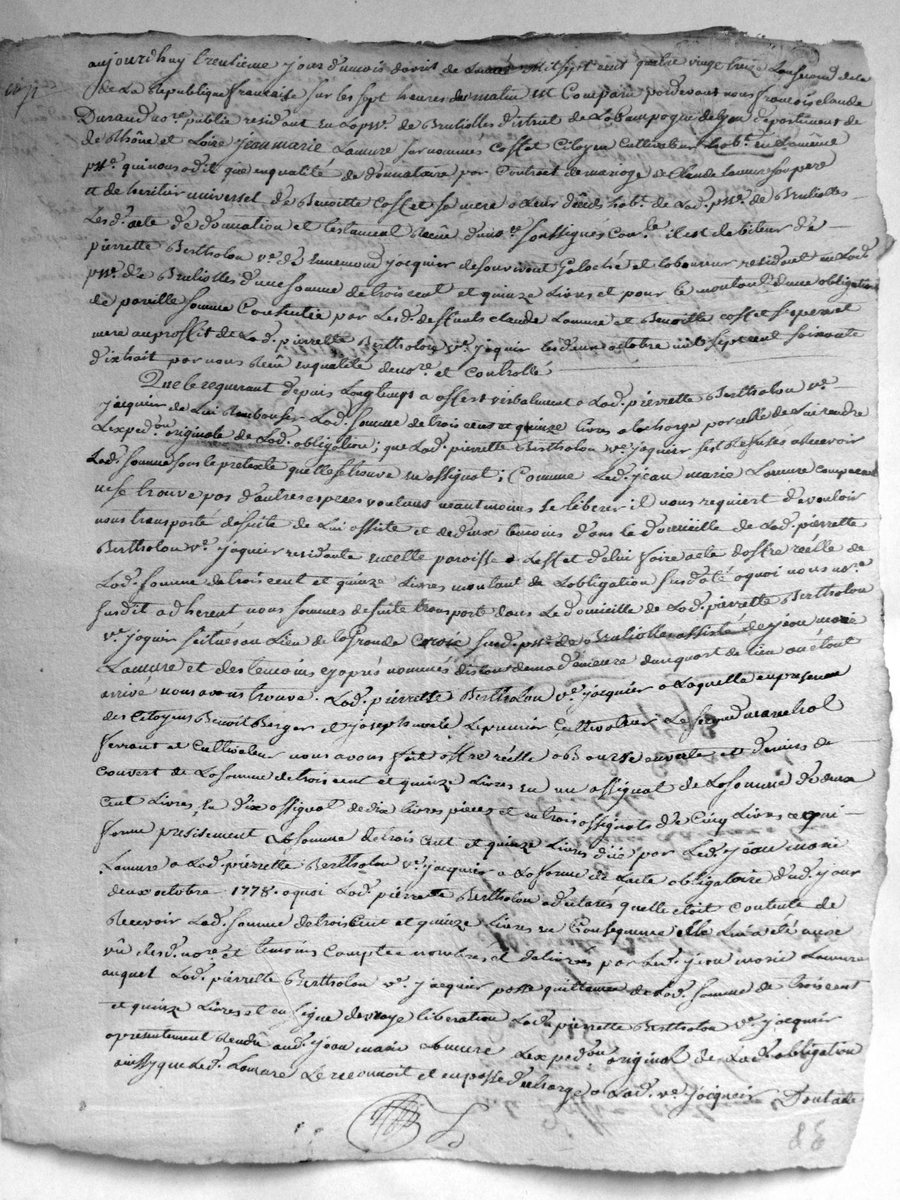 aujourdhuy trentieme jour du mois davril de Lannée mil sept cent quatre vingt treize Lan second de la
de La Republique française sur les sept heures du matin Est Comparu pardevant nous françois claude
Durand no.re public residant En La p.sse de Brullioles district de La Campagne de Lyon departement de
de Rhône et Loire jean marie Lamure surnommé Cosset Citoyen Cultivateur hab.t en La même
p.sse qui nous a dit que en qualité de donnataire par Contract de mariage de Claude Lamure Son pere
et de heritier universel de Benoitte Cosset sa mere a Leur deces hab.t de Lad. p.sse de Brullioles
Lesd. acte de donnation et testament Recûs d'un no.re Soussignés il est debiteur de
pierrette Bertholon v.e de Ennemond jacquier de son vivant Galoché et laboureur residant en Lad.
p.sse de Brullioles d'une somme de trois cent et quinze Livres et pour le montant d'une obligation
de pareille somme Consentie par Lesd. deffunts claude Lamure et Benoitte cosset ses pere et
mere au proffit de Lad. pierrette Bertholon v.e jacquier le deux octobre mil sept cent soixante
d'ixhuit par nous Reçû en qualité de no.re et Controllé
Que le requerant depuis Longtemps a offert verbalment a Lad. pierrette Bertholon v.e
jacquier de Lui Rembourser Lad. somme de trois cent et quinze livres a la charge par elle de Lui rendre
L'exped.on originale de Lad. obligation; que Lad. pierrette Bertholon v.e jacquier s'est Refusée a Recevoir
Lad. somme sous le pretexte qu'elle se trouve en assignat; Comme Led. jean marie Lamure comparant
ne se trouve pas d'autres especes voulant neantmoins se liberer il nous requiert de vouloir
nous transporté de suite de Lui assisté et de deux temoins dans le domicille de Lad. pierrette
Bertholon v.e jacquier residante en cette paroisse a L'effet de lui faire acte d'offre réélle de
Lad. somme de trois cent et quinze Livres montant de L'obligation susdaté a quoi nous no.re
susdit adherent nous sommes de suite transporté dans Le domicille de Lad. pierrette Bertholon
v.e jacquier situé au Lieu de La Grande Croix sud. p.sse de Brullioles assisté de jean marie
Lamure et des temoins cyaprés nommés distant de ma demeure d'un quart de lieu ou étant
arrivé nous avons trouvé Lad. pierrette Bertholon v.e jacquier a Laquelle en presence
des Citoyens Benoit Berger et joseph Le premier Cultivateur Le second marechal
ferrant et Cultivateur nous avons fait offre réélle a Bourse ouverte et deniers de
couvert de La somme de trois cent et quinze Livres en un assignat de La somme de deux
Cent Livres, En dix assignat de dix livres pieces et en trois assignats de Cinq Livres ce qui
forme presisement La somme de trois cent et quinze Livres düe par Led. jean marie
Lamure a Lad. pierrette Bertholon v.e jacquier a La forme de L'acte obligatoire dud. jour
deux octobre 1778. a quoi Lad. pierrette Bertholon a declaré quelle étoit contente de
Recevoir Lad. somme de trois Cent et quinze Livres en Consequence elle Lui a été a vue
vû desd. no.re et temoins Comptée nombrée et delivrée par Led. jean marie Lamure
auquel Lad. pierrette Bertholon v.e jacquier passe quittance de Lad. somme de trois cent
et quinze Livres et en signe de vraye liberation Lad. pierrette Bertholon v.e jacquier
a presentement Rendû aud. jean marie Lamure L'exped.on original de Lad. obligation
ainsy que Led. Lamure Le reconnoit et en passe decharge a Lad. v.e jacquier Dont acte
88